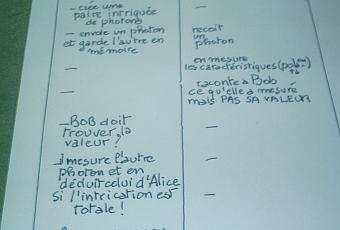 - crée une
paire intriquée
de photons
- envoie un photon
et garde l'autre en
mémoire
—
—
- BOB doit
trouver la
valeur ?
- mesure l'autre
photon et en
déduit celui d'Alice
si l'intrication est
totale !
—
reçoit
un
photon
en mesure
les caractéristiques
raconte à Bob
ce qu'elle a mesuré
mais PAS SA VALEUR
—
—
—